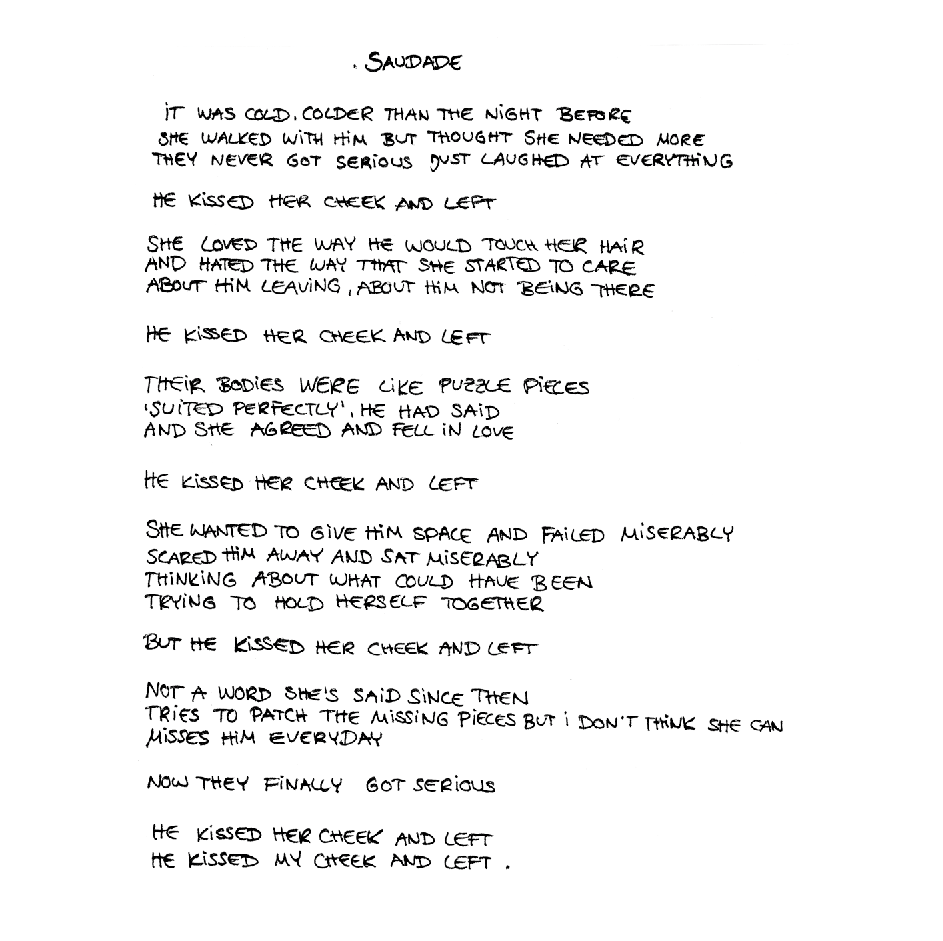 . SAUDADE
iT WAS COLD. COLDER THAN THE NiGHT BEFORE
SHE WALKED WiTH HiM BUT THOUGHT SHE NEEDED MORE
THEY NEVER GOT SERiOUS JUST LAUGHED AT EVERYTHiNG
HE KiSSED HER CHEEK AND LEFT
SHE LOVED THE WAY HE WOULD TOUCH HER HAiR
AND HATED THE WAY THAT SHE STARTED TO CARE
ABOUT HiM LEAViNG, ABOUT HiM NOT BEiNG THERE
HE KiSSED HER CHEEK AND LEFT
THEiR BODiES WERE LiKE PUZZLE PiECES
'SUiTED PERFECTLY', HE HAD SAiD
AND SHE AGREED AND FELL iN LOVE
HE KiSSED HER CHEEK AND LEFT
SHE WANTED TO GiVE HiM SPACE AND FAiLED MiSERABLY
SCARED HiM AWAY AND SAT MiSERABLY
THiNKiNG ABOUT WHAT COULD HAVE BEEN
TRYiNG TO HOLD HERSELF TOGETHER
BUT HE KiSSED HER CHEEK AND LEFT
NOT A WORD SHE'S SAiD SiNCE THEN
TRiES TO PATCH THE MiSSiNG PiECES BUT i DON'T THiNK SHE CAN
MiSSES HiM EVERYDAY
NOW THEY FiNALLY GOT SERiOUS
HE KiSSED HER CHEEK AND LEFT
HE KiSSED MY CHEEK AND LEFT .